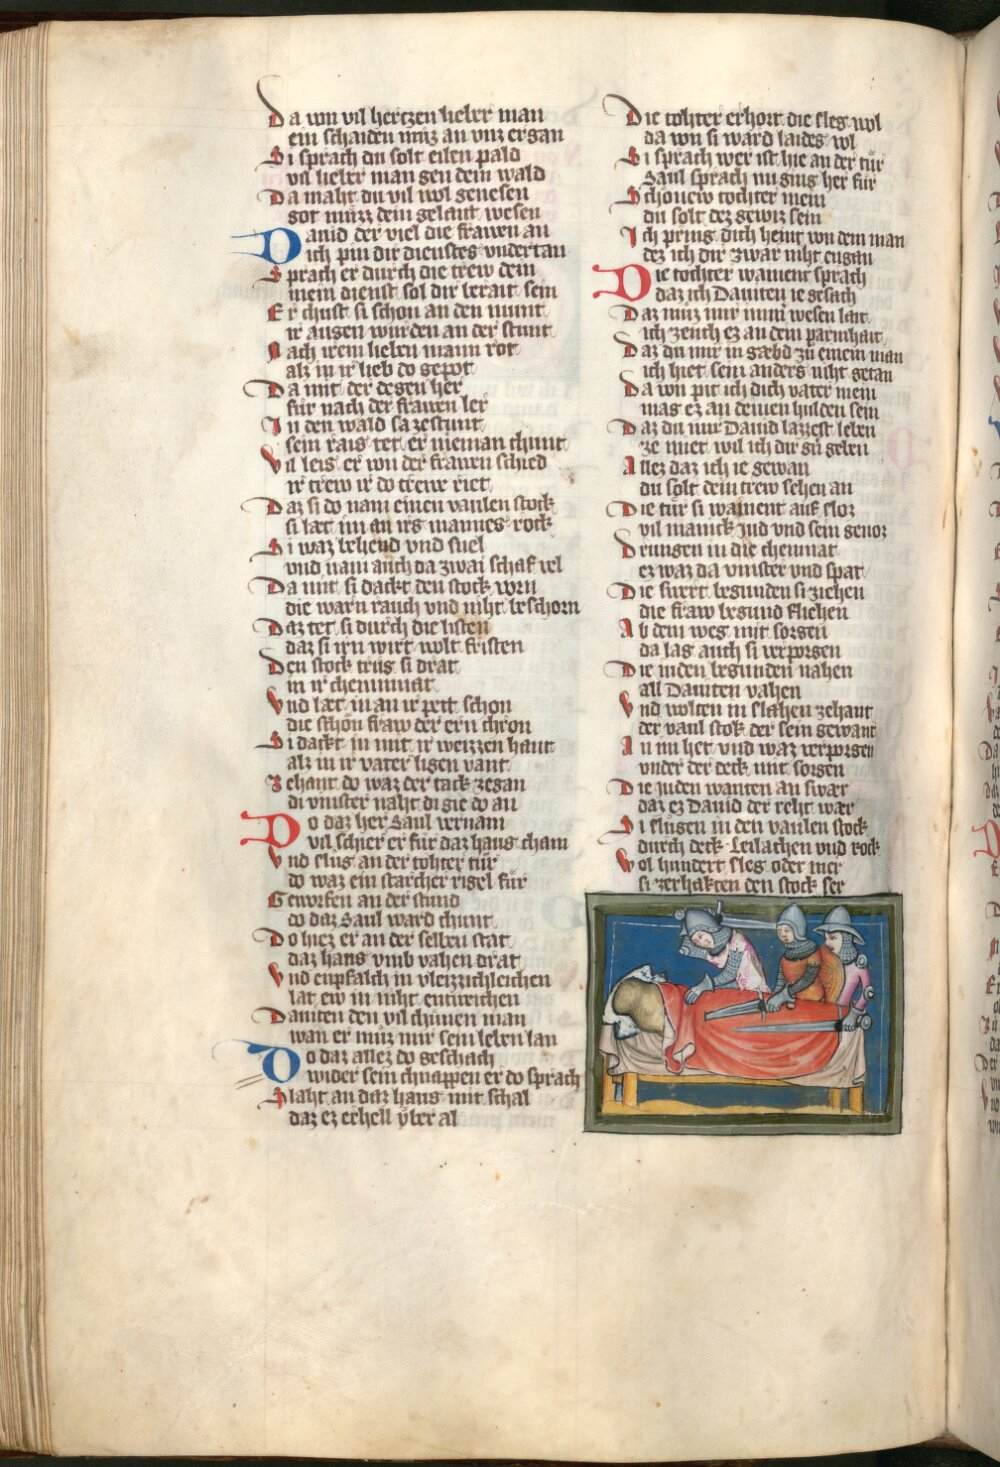 Da von vil hertzen lieber man
ein schaiden muz an vnz ergan
Si sprach du solt eilen pald
vil lieber man gen dem wald
Da maht du vil wol genesen
got muzz dein gelaut wesen
Dauid der viel die frawen an
ich pin dir dienstes vndertan
Sprach er durch die trew dein
mein dienst sol dir berait sein
Er chust si schon an den munt
ir augen wurden an der stunt
Nach irem lieben mann rot
alz in ir lieb do gepot
Da mit der degen her
fůr nach der frawen ler
In den wald sa ze stunt
sein rais tet er nieman chunt
Vil leis er von der frawen schied
ir trew ir do trewe riet
Daz si do nam einen vaulen stock
si læt im an irs mannes rock
Si waz behend vnd snel
vnd nam auch da zwai schaf vel
Da mit si dackt den stock vorn
die warn rauch vnd niht beschorn
Daz tet si durch die listen
daz si irn wirt wolt fristen
Den stock trůg si drat
in ir chemmnat
Vnd læt in an ir pett schon
die schön fraw der ern chron
Si dackt in mit ir weizzen haut
alz in ir vater ligen vant
Zehant do waz der tack zegan
di vinster naht di gie do an
Do daz her Saul vernam
vil schier er fur daz haus cham
Vnd slůg an der tohter tür
do waz ein starcher rigel für
Geworfen an der stund
do daz Saul ward chunt
Do hiez er an der selben stat
daz haus vmb vahen drat
Vnd enpfalch in vleizzichleichen
lat ew in niht entweichen
Dauiten den vil chůnen man
wan er můz mir sein leben lan
Do daz allez do geschach
wider sein chnappen er do sprach
Slaht an daz haus mit schal
daz ez erhell vber al
Die tohter erhort die sleg wol
da von si ward laides vol
Si sprach wer ist hie an der tür
Saul sprach nu ging her für
Schonew tochter mein
du solt dez gewiz sein
Ich pring dich heint von dem man
dez ich dir zwar niht engan
Die tochter wainent sprach
daz ich Dauiten ie gesach
Daz můz mir immer wesen lait
ich zeuch ez an dein parmhait
Daz du mir in gæbd zů einem man
ich hiet sein anders niht getan
Da von pit ich dich vater mein
mag ez an deinen hulden sein
Daz du mir Dauid lazzest leben
ze miet wil ich dir gů geben
Allez daz ich ie gewan
du solt dein trew sehen an
Die tür si wainent auf sloz
vil manick jud vnd sein genoz
Drungen in die chemnat
ez waz da vinster vnd spat
Die swert begunden si ziehen
die fraw begund fliehen
Ab dem weg mit sorgen
da lag auch si verporgen
Die iuden begunden nahen
all Dauiten vahen
Vnd wolten in slahen zehant
der vaul stok der sein gewant
An im het vnd waz verporgen
vnder der deck mit sorgen
Die iuden wanten an swær
daz ez Dauid der reht wær
Si slůgen in den vaulen stock
durch deck leilachen vnd rock
Wol hundert sleg oder mer
si zerhakten den stock ser